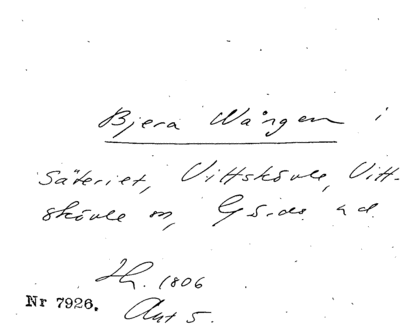 Bjera Wången i
Säteriet, Vittskövle, Vitt-
skövle sn, Gärds hd
Hh. 1806
Nr 7926. Akt 5.